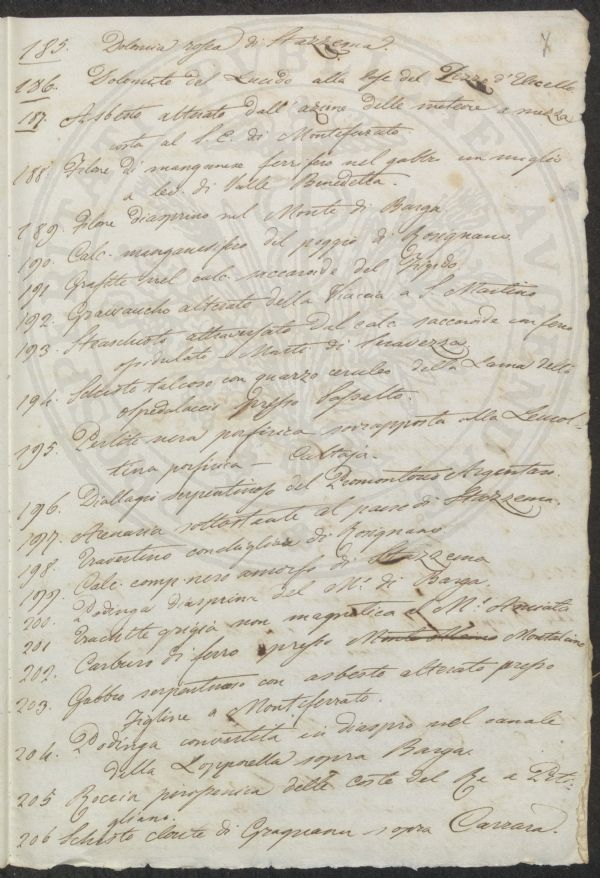 185. Dolomia rosea di Stazzema.
186. Dolomite del Lucido alla base del Pizzo d'Uccello
187. Asbesto alterato dall'azione delle meteore a mezza
costa al S. E. di Monteferrato
188. Filone di manganese ferrifero nel gabbro un miglio
a lev. di Valle Benedetta.
189. Filone diasprino nel Monte di Barga.
190. Calc. manganesifero del poggio di Rosignano
191. Grafite nel calc. saccaroide del Frigido.
192. Grawaucho alterato della a S. Martino
193. Steaschisto attraversato dal calc. saccaroide con ferro
ossidulato Monte di
194. Schisto talcoso con quarzo ceruleo della Lama dello
ospedalaccio presso Sassalbo.
195. Perlite nera porfirica sovrapposta alla
porfirica —
196. Diallagi serpentinoso del Promontorio Argentaro.
197. Arenaria sottostante al paese di Stazzema.
198. Travertino conchigliare di Rosignano
199. Calc. comp. nero amorfo di Stazzema
200. Podinga diasprina del M.e di Barga.
201 Trachite grigia non magnetica al M.e Amiata
202. Carburo di ferro presso Montalcino
203. Gabbro serpentinoso con asbesto alterato presso
Figline a Monteferrato.
204. Podinga convertita in diaspro nel canale
della Lopporella sopra Barga.
205 Roccia delle coste del Re a Piti-
gliano.
206 Schisto di Gragnana sopra Carrara.